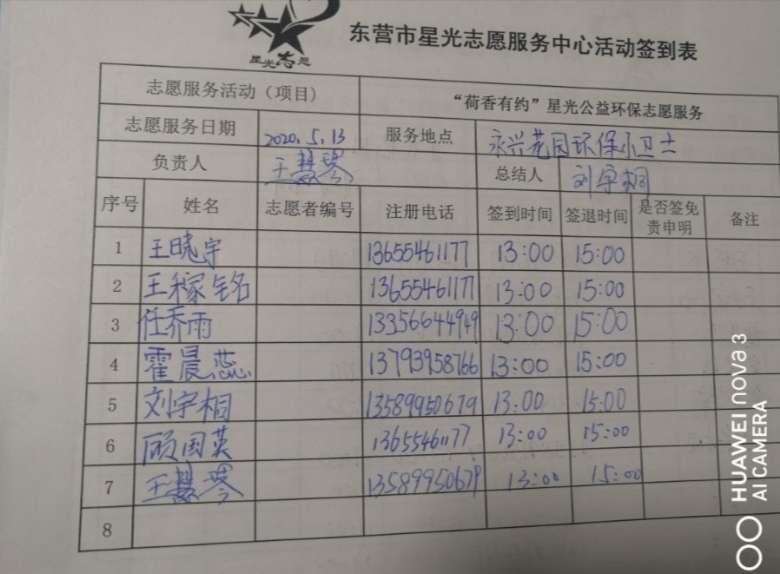 星光志愿
东营市星光志愿服务中心活动签到表
志愿服务活动（项目） “荷香有约”星光公益环保志愿服务
志愿服务日期 2020.5.13 服务地点 永兴花园环保小卫士
负责人 王慧琴 总结人 刘宇桐
序号 姓名 志愿者编号 注册电话 签到时间 签退时间 是否签免责申明 备注
1 王晓宇 13655461177 13:00 15:00
2 王稼铭 13655461177 13:00 15:00
3 任乔雨 13356644949 13:00 15:00
4 霍晨蕊 13793958766 13:00 15:00
5 刘宇桐 13589950679 13:00 15:00
6 顾国英 13655461177 13:00 15:00
7 王慧琴 13589950679 13:00 15:00
8
HUAWEI nova 3
AI CAMERA